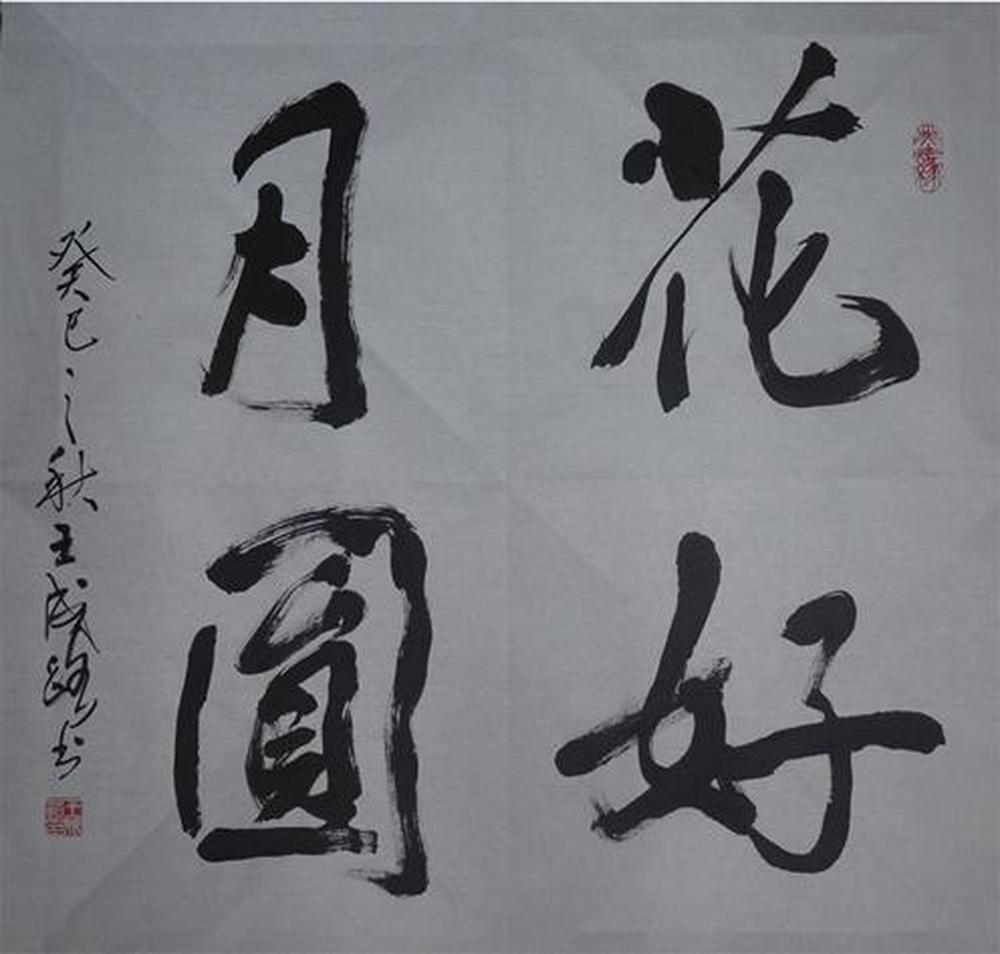 花好
月圓
癸巳之秋王成路书